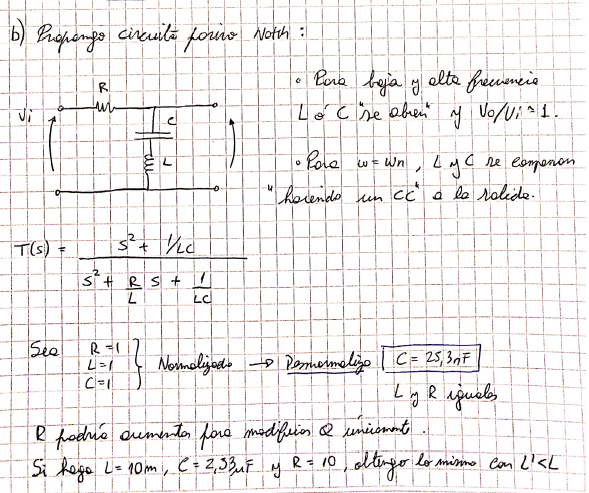 b) Propongo circuito pasivo Notch :
R
Vi
C
L
• Para baja y alta frecuencia
L ó C "se abren" y Vo/Vi ≈ 1.
• Para w = wn , L y C se compensan
"haciendo un CC" a la salida.
T(s) = (s² + 1/LC) / (s² + R/L s + 1/LC)
Sea R = 1
L = 1
C = 1
Normalizado → Desnormalizo C = 25,3nF
L y R iguales
R podría aumentar para modificar Q únicament.
Si hago L = 10m , C = 2,53μF y R = 10 , obtengo lo mismo con L'<L